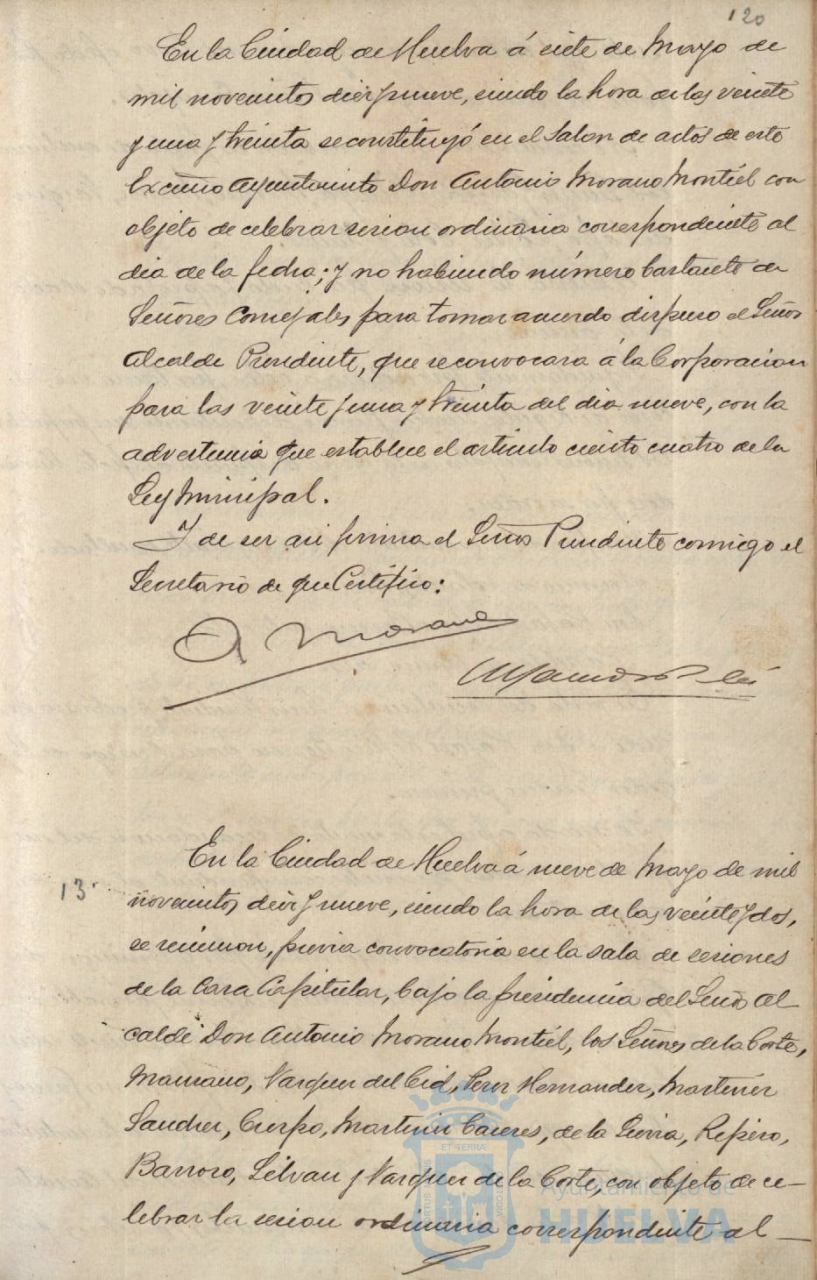 120
En la Ciudad de Huelva á siete de Mayo de
mil novecientos diez y nueve, siendo la hora de las veinte
y una y treinta se constituyó en el Salon de actos de este
Excmo Ayuntamiento Don Antonio Morano Montiel con
objeto de celebrar sesion ordinaria correspondiente al
dia de la fecha; y no habiendo número bastante de
Señores Concejales para tomar acuerdo dispuso el Señor
Alcalde Presidente, que se convocara á la Corporacion
para las veinte y una y treinta del dia nueve, con la
advertencia que establece el articulo ciento cuatro de la
Ley Municipal.
Y de ser asi firma el Señor Presidente conmigo el
Secretario de que Certifico:
A Morano
13.
En la Ciudad de Huelva á nueve de Mayo de mil
novecientos diez y nueve, siendo la hora de las veinte y dos,
se reunieron, previa convocatoria en la sala de sesiones
de la Casa Capitular, bajo la presidencia del Señor Al
calde Don Antonio Morano Montiel, los Señores de la Corte,
Mascano, Vazquez del Cid, Perez Hernandez, Martinez
Sanchez, Crespo, Martinez Caceres, de la Sierra, Repiso,
Barroso, Silvan y Vazquez de la Corte, con objeto de ce-
lebrar la sesion ordinaria correspondiente al
Ayuntamiento de
HUELVA